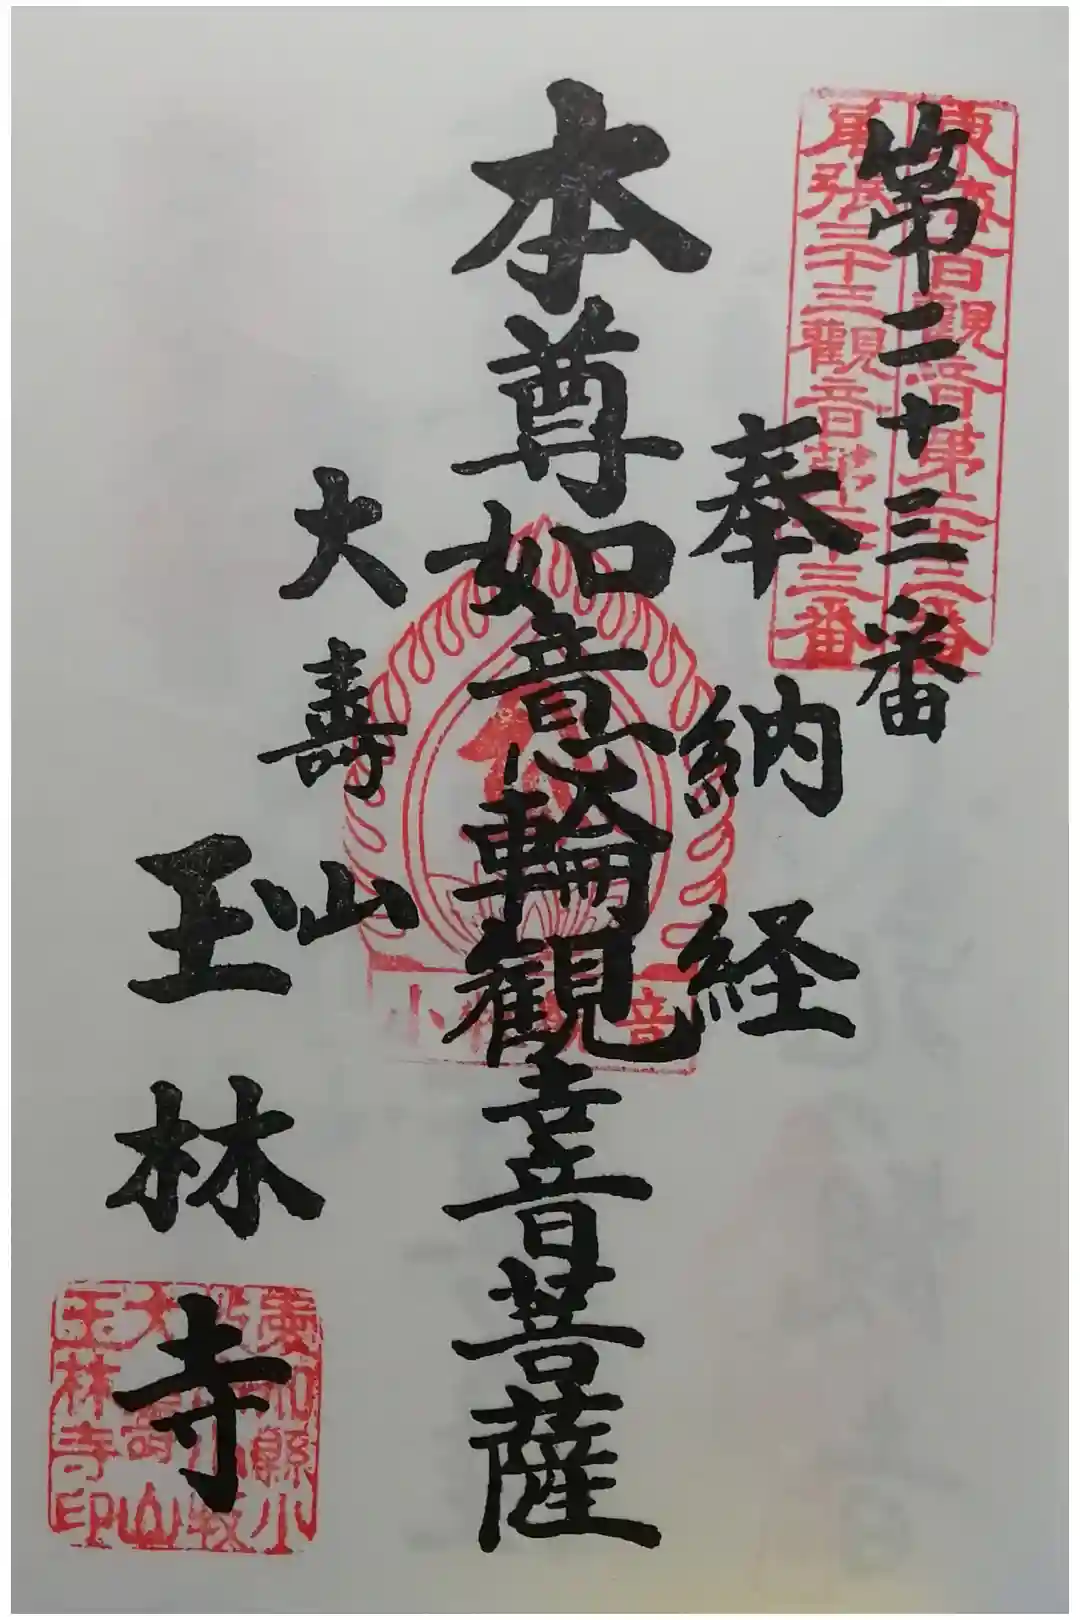 第二十三番
東海百観音第二十三番
尾張三十三観音第二十三番
奉納経
本尊如意輪観音菩薩
大寿山
玉林寺
小牧観音
愛知縣小
玉林寺印